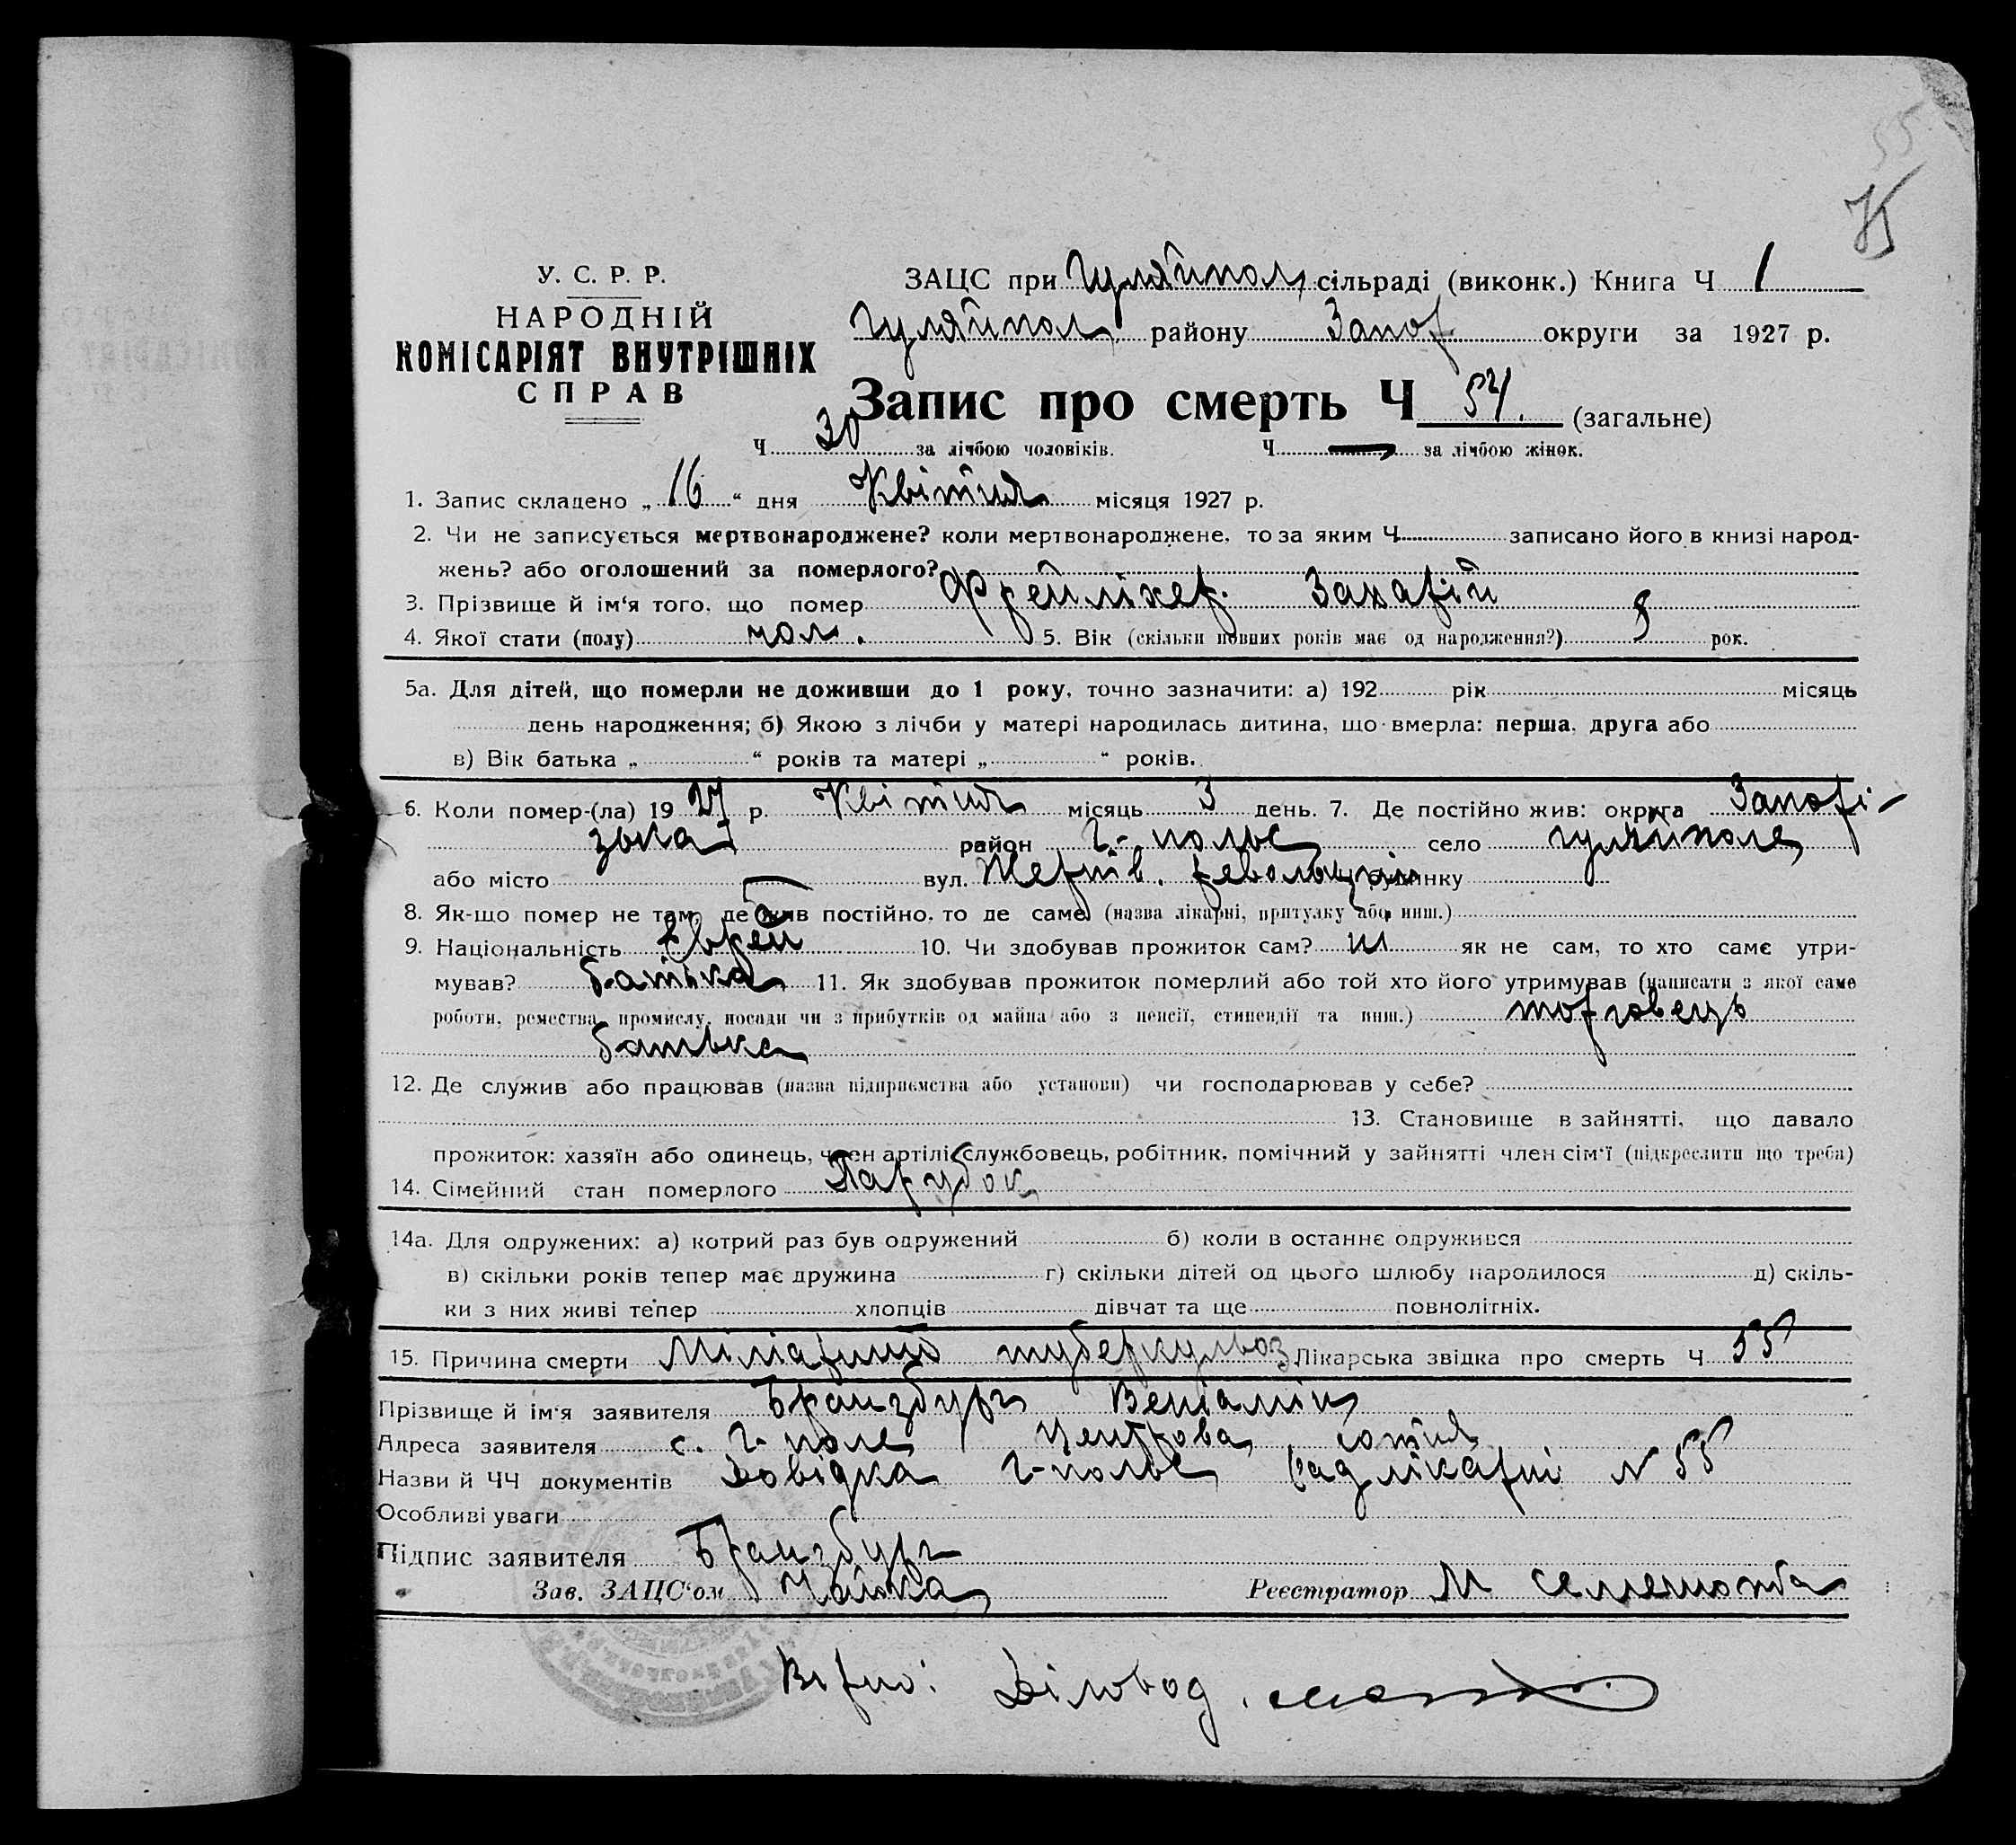 55
75
У. С. Р. Р.
НАРОДНІЙ
КОМІСАРІЯТ ВНУТРІШНІХ
СПРАВ
ЗАЦС при Гуляйпол. сільраді (виконк.) Книга Ч 1
Гуляйпол. району Запор. округи за 1927 р.
Запис про смерть Ч 54. (загальне)
Ч 30 за лічбою чоловіків. Ч — за лічбою жінок.
1. Запис складено „ 16 “ дня Квітня місяця 1927 р.
2. Чи не записується мертвонароджене? коли мертвонароджене, то за яким Ч записано його в книзі народ-
жень? або оголошений за померлого?
3. Прізвище й ім‘я того, що помер Фрейліхер. Захарій
4. Якої стати (полу) чол. 5. Вік (скільки повних років має од народження?) 8 рок.
5а. Для дітей, що померли не доживши до 1 року, точно зазначити: а) 192 рік місяць
день народження; б) Якою з лічби у матері народилась дитина, що вмерла: перша, друга або
в) Вік батька „ “ років та матері „ “ років.
6. Коли помер-(ла) 19 27 р. Квітня місяць 3 день. 7. Де постійно жив: округа Запорі-
зька район Г-польс село Гуляйполе
або місто — вул. Жертів. революції будинку
8. Як-що помер не там, де жив постійно, то де саме (назва лікарні, притулку або инш.)
9. Національність Єврей 10. Чи здобував прожиток сам? ні як не сам, то хто саме утри-
мував? батька 11. Як здобував прожиток померлий або той хто його утримував (написати з якої саме
роботи, ремества, промислу, посади чи з прибутків од майна або з пенсії, стипендії та инш.) торговець
батька
12. Де служив або працював (назва підприємства або установи) чи господарював у себе?
13. Становище в зайнятті, що давало
прожиток: хазяїн або одинець, член артілі, службовець, робітник, помічний у зайнятті член сім‘ї (підкреслити що треба)
14. Сімейний стан померлого Парубок
14а. Для одружених: а) котрий раз був одружений б) коли в останнє одружився
в) скільки років тепер має дружина г) скільки дітей од цього шлюбу народилося д) скіль-
ки з них живі тепер хлопців дівчат та ще повнолітніх.
15. Причина смерти Міліарний туберкульоз Лікарська звідка про смерть Ч 55
Прізвище й ім‘я заявителя Бранзбург Веніамін
Адреса заявителя с. Г-поле Центрова сотня
Назви й ЧЧ документів Довідка Г-польс рад лікарні N 55
Особливі уваги
Підпис заявителя Бранзбург
Зав. ЗАЦС‘ом Чайка Реєстратор М
Вірно: Діловод